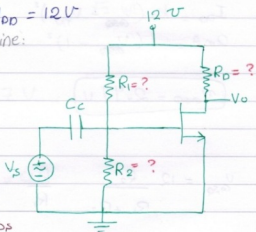 DD = 12V
ine:
12 V
R1=?
RD=?
Vo
Cc
Vs
R2=?